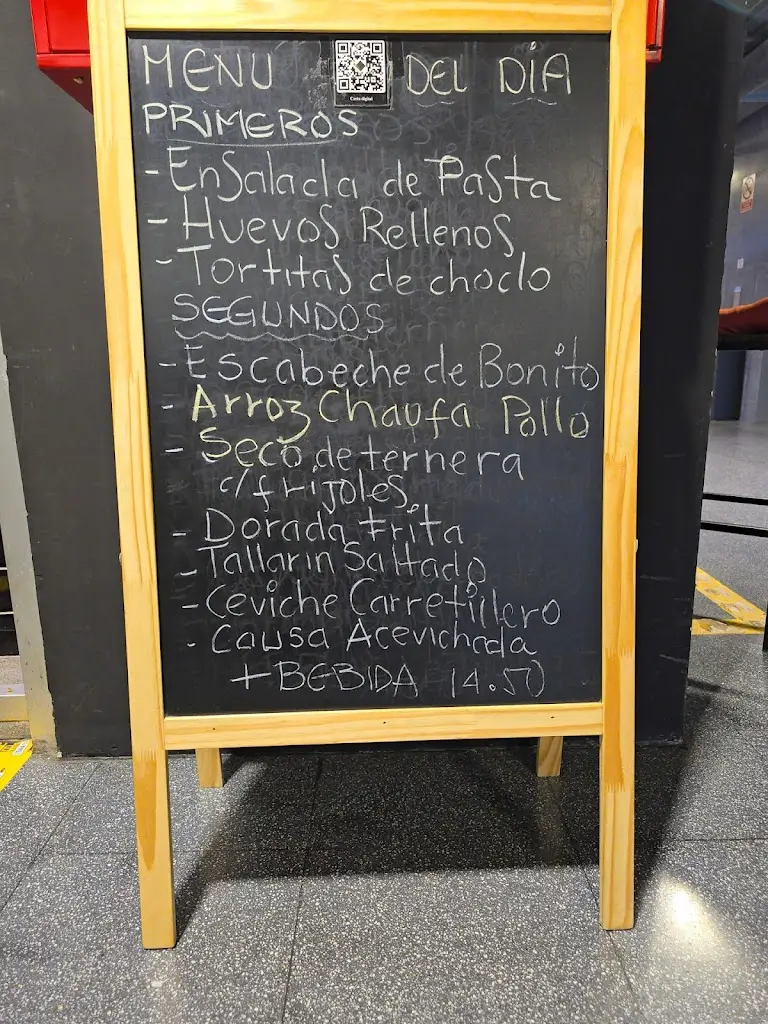 MENU DEL DÍA
Carta digital
PRIMEROS
- Ensalada de Pasta
- Huevos Rellenos
- Tortitas de choclo
SEGUNDOS
- Escabeche de Bonito
- Arroz Chaufa Pollo
- Seco de ternera
c/frijoles
- Dorada frita
- Tallarin Saltado
- Ceviche Carretillero
- Causa Acevichada
+ BEBIDA 14.50